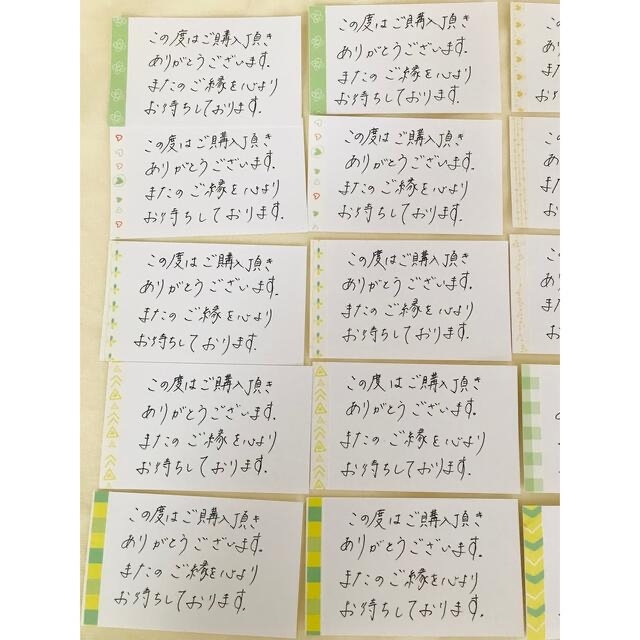 この度はご購入頂き
ありがとうございます.
またのご縁を心より
お待ちしております.
この度はご購入頂き
ありがとうございます.
またのご縁を心より
お待ちしております.
この度はご購入頂き
ありがとうございます.
またのご縁を心より
お待ちしております.
この度はご購入頂き
ありがとうございます.
またのご縁を心より
お待ちしております.
この度はご購入頂き
ありがとうございます.
またのご縁を心より
お待ちしております.
この度はご購入頂き
ありがとうございます.
またのご縁を心より
お待ちしております.
この度はご購入頂き
ありがとうございます.
またのご縁を心より
お待ちしております.
この度はご購入頂き
ありがとうございます.
またのご縁を心より
お待ちしております.
この度はご購入頂き
ありがとうございます.
またのご縁を心より
お待ちしております.
この度はご購入頂き
ありがとうございます.
またのご縁を心より
お待ちしております.